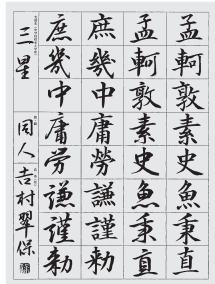 孟軻敦素史魚秉直
孟軻敦素史魚秉直
庶幾中庸勞謙謹勅
庶幾中庸労謙謹勅
三星
同人 吉村翠保